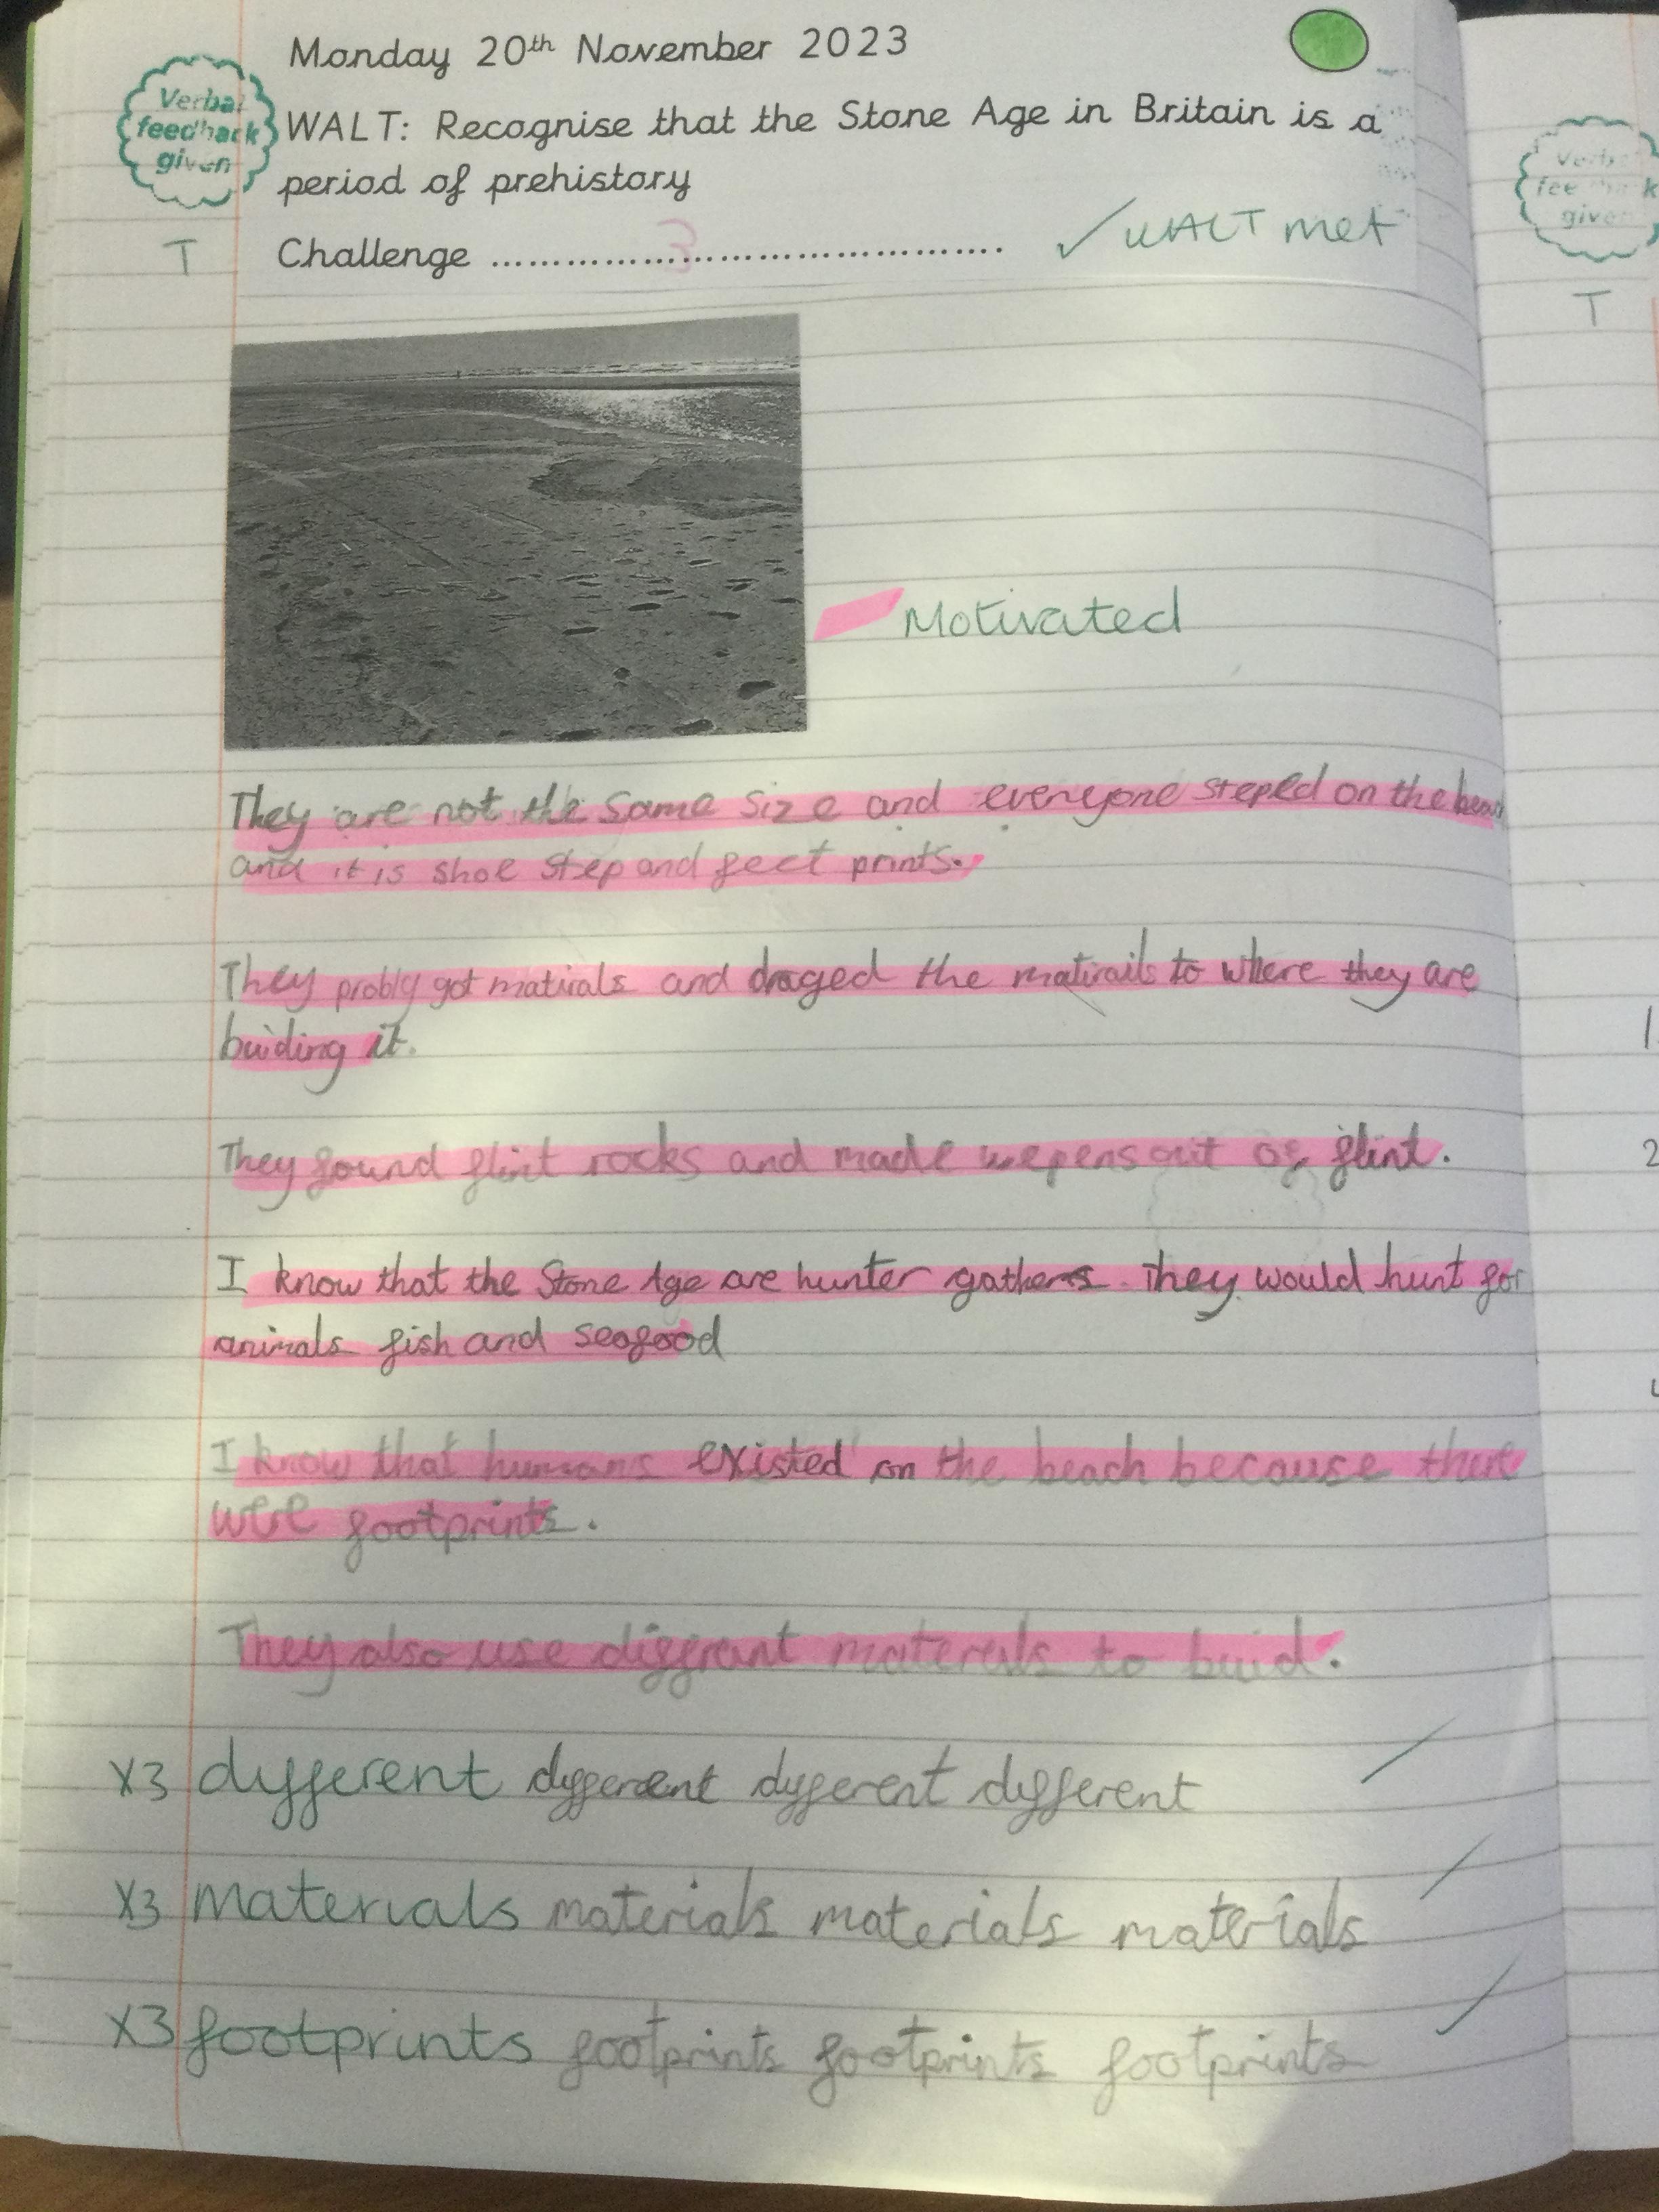 Monday 20th November 2023
Verbal
feedback
given
WALT: Recognise that the Stone Age in Britain is a
period of prehistory
T
Challenge ........................................
3
✓ WALT met
Motivated
They are not the same size and everyone steped on the
and it is shoe step and feet prints.
They probly got matirals and draged the matirails to where they are
buiding it.
They found flint rocks and made wepens out of flint.
I know that the Stone Age are hunter gathers. They would hunt for
animals fish and seafood
I know that humans existed on the beach because there
were footprints.
They also use diffrant materels to buid.
X3 different different different different
X3 materials materials materials materials
X3 footprints footprints footprints footprints
Verbal
feedback
given
T
1
2